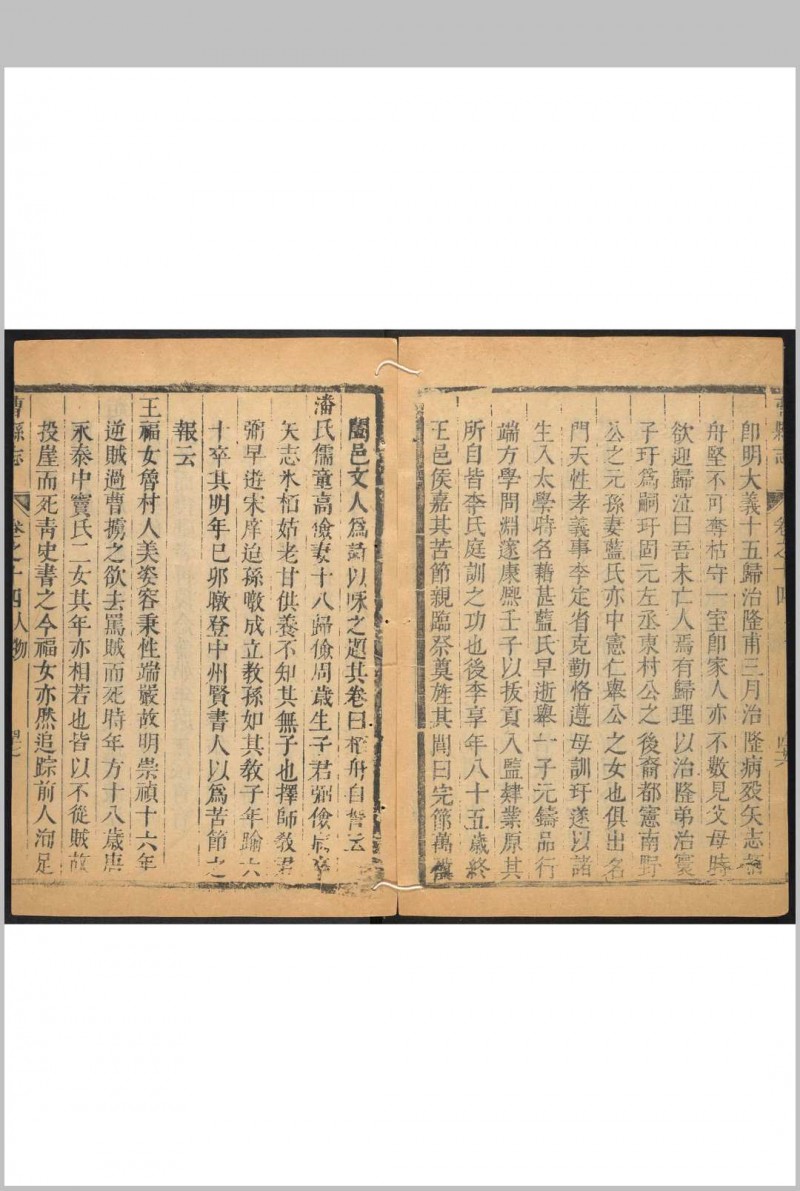 曹縣志
卷之十四
卽明大義十五歸治隆甫三月治隆病歿矢志
舟堅不可奪枯守一室卽家人亦不數見父母時
欲迎歸泣曰吾未亡人焉有歸理以治隆弟治寰
子玗爲嗣玗固元左丞東村公之後裔都憲南野
公之元孫妻藍氏亦中憲仁舉公之女也俱出名
門天性孝義事李定省克勤恪遵母訓玗遂以諸
生入太學時名藉甚藍氏早逝舉一子元鑄品行
端方學問淵邃康熙壬子以拔貢入監肄業原其
所自皆李氏庭訓之功也後李享年八十五歲終
王邑侯嘉其苦節親臨祭奠旌其閭曰完節萬
闔邑文人爲詩以咏之題其卷曰栢舟自誓云
潘氏儒童高儉妻十八歸儉周歲生子君弼儉病卒
矢志氷栢姑老甘供養不知其無子也擇師教君
弼早遊宋庠迨孫暾成立教孫如其教子年踰六
十卒其明年已卯暾登中州賢書人以爲苦節之
報云
王福女魯村人美姿容秉性端嚴故明崇禎十六年
逆賊過曹擄之欲去罵賊而死時年方十八歲唐
永泰中竇氏二女其年亦相若也皆以不從賊故
投崖而死靑史書之今福女亦然追踪前人洵足
曹縣志
卷之十四人物